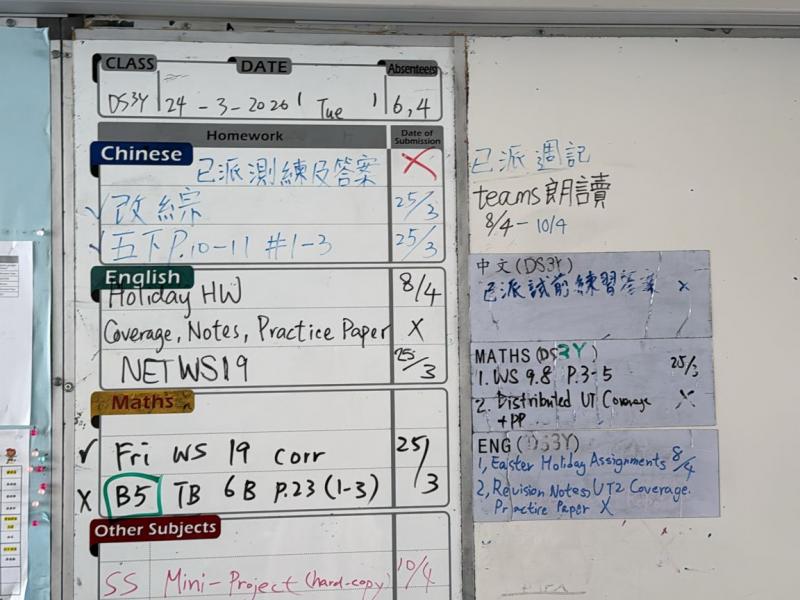 CLASS DATE Absentees
DS3Y 24-3-2026 ( Tue ) 6,4
Homework Date of Submission
Chinese
已派測練及答案 X
✓ 改綜 25/3
✓ 五下 P.10-11 #1-3 25/3
English
Holiday HW 8/4
Coverage, Notes, Practice Paper X
NET WS19 25/3
Maths
✓ Fri WS 19 corr 25/3
X B5 TB 6B P.23 (1-3)
Other Subjects
SS Mini-Project (hard-copy) 10/4
已派週記
teams 朗讀
8/4 - 10/4
中文 (DS3Y)
已派試前練習答案 x
MATHS (DS3Y)
1. WS 9.8 P.3-5 25/3
2. Distributed UT Coverage X
+ PP
ENG (DS3Y)
1, Easter Holiday Assignments 8/4
2, Revision Notes, UT2 Coverage.
Practice Paper X